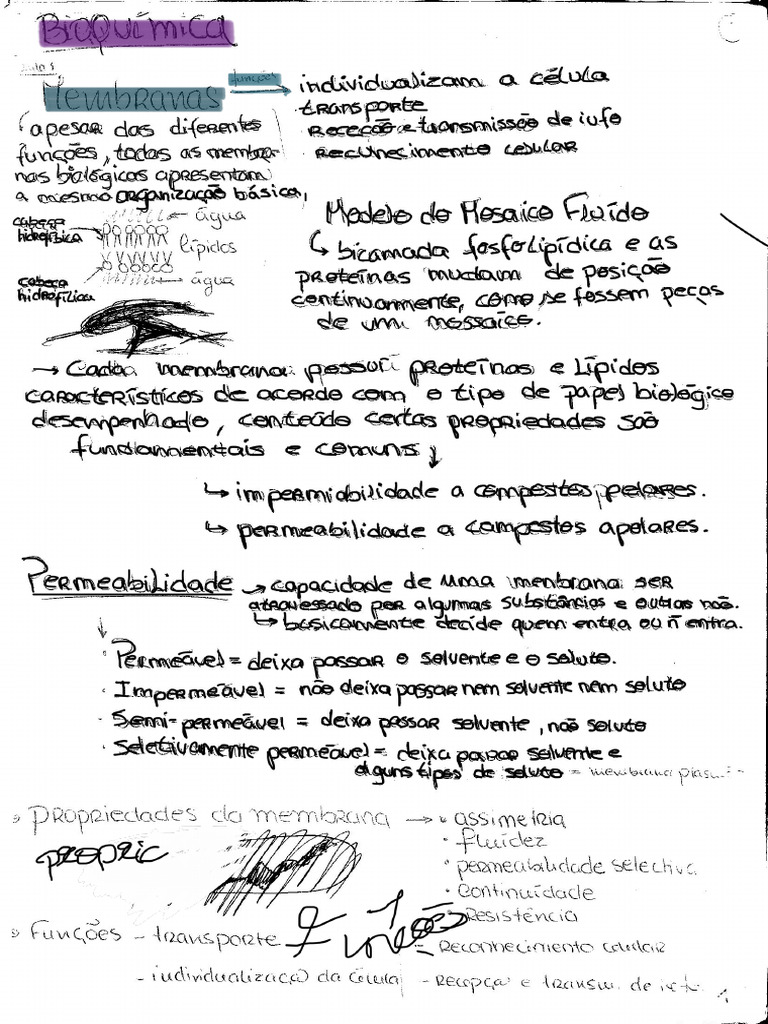 Bioquímica
Aula 1
Membranas funções → individualizam a célula
transporte
receção e transmissão de info
reconhecimento celular
apesar das diferentes
funções, todas as membra-
nas biológicas apresentam
a mesma organização básica,
cabeça
hidrofíbica
← água
lípidos
cabeça
hidrofílica
← água
Modelo do Mosaico Fluído
↳ bicamada fosfolipídica e as
proteínas mudam de posição
continuamente, como se fossem peças
de um mosaico.
→ Cada membrana possui proteínas e lípidos
característicos de acordo com o tipo de papel biológico
desempenhado, conteúdo certas propriedades são
fundamentais e comuns ↓
↳ impermiabilidade a compostos polares.
↳ permeabilidade a compostos apolares.
Permeabilidade → capacidade de uma menbrana ser
atravessado por algumas substâncias e outras não.
↳ basicamente decide quem entra ou ñ entra.
· Permeável = deixa passar o solvente e o soluto.
· Impermeável = não deixa passar nem solvente nem soluto
· Semi-permeável = deixa passar solvente, não soluto
· Seletivamente permeável = deixa passar solvente e
alguns tipos de soluto = membrana plasm.
Propriedades da membrana → • assimetria
propric
· fluídez
· permeabilidade selectiva
· continuídade
· Resistência
Funções - transporte
Funções
- Reconhecimento celular
- individualizaçã da célula
- recepçã e transm. de inf.